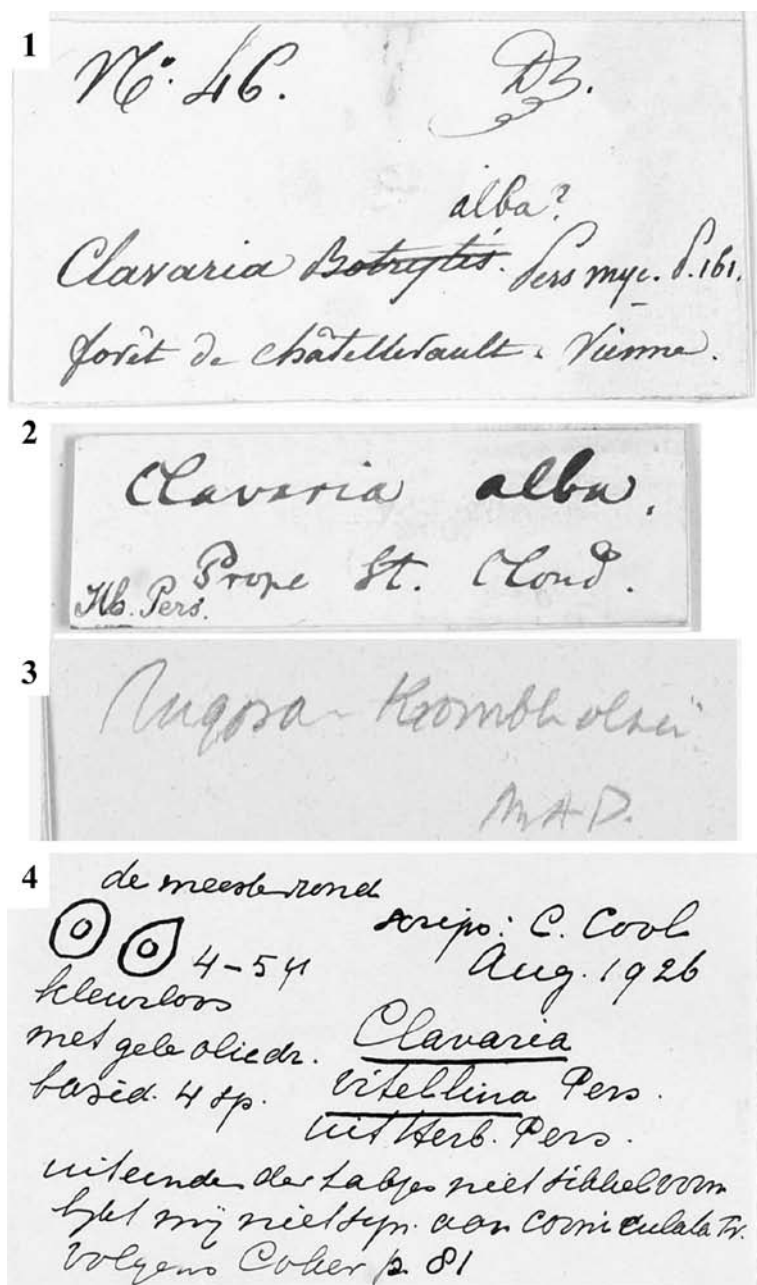 1
No. 46. DZ.
alba?
Clavaria Botrytis. Pers myc. p. 161.
forêt de châtellerault. Vienne.
2
Clavaria alba.
Prope St. Cloud.
Hb. Pers.
3
Rugosa - Krombholzii
M A D.
4
de meeste rond
scrips: C. Cool
4-5 µ Aug. 1926
kleurloos
met gele oliedr. Clavaria
basid. 4 sp. vitellina Pers.
uit Herb. Pers.
uiteinden der takjes niet sikkelvorm
lijkt mij niet syn. aan corniculata Fr.
volgens Coker p. 81